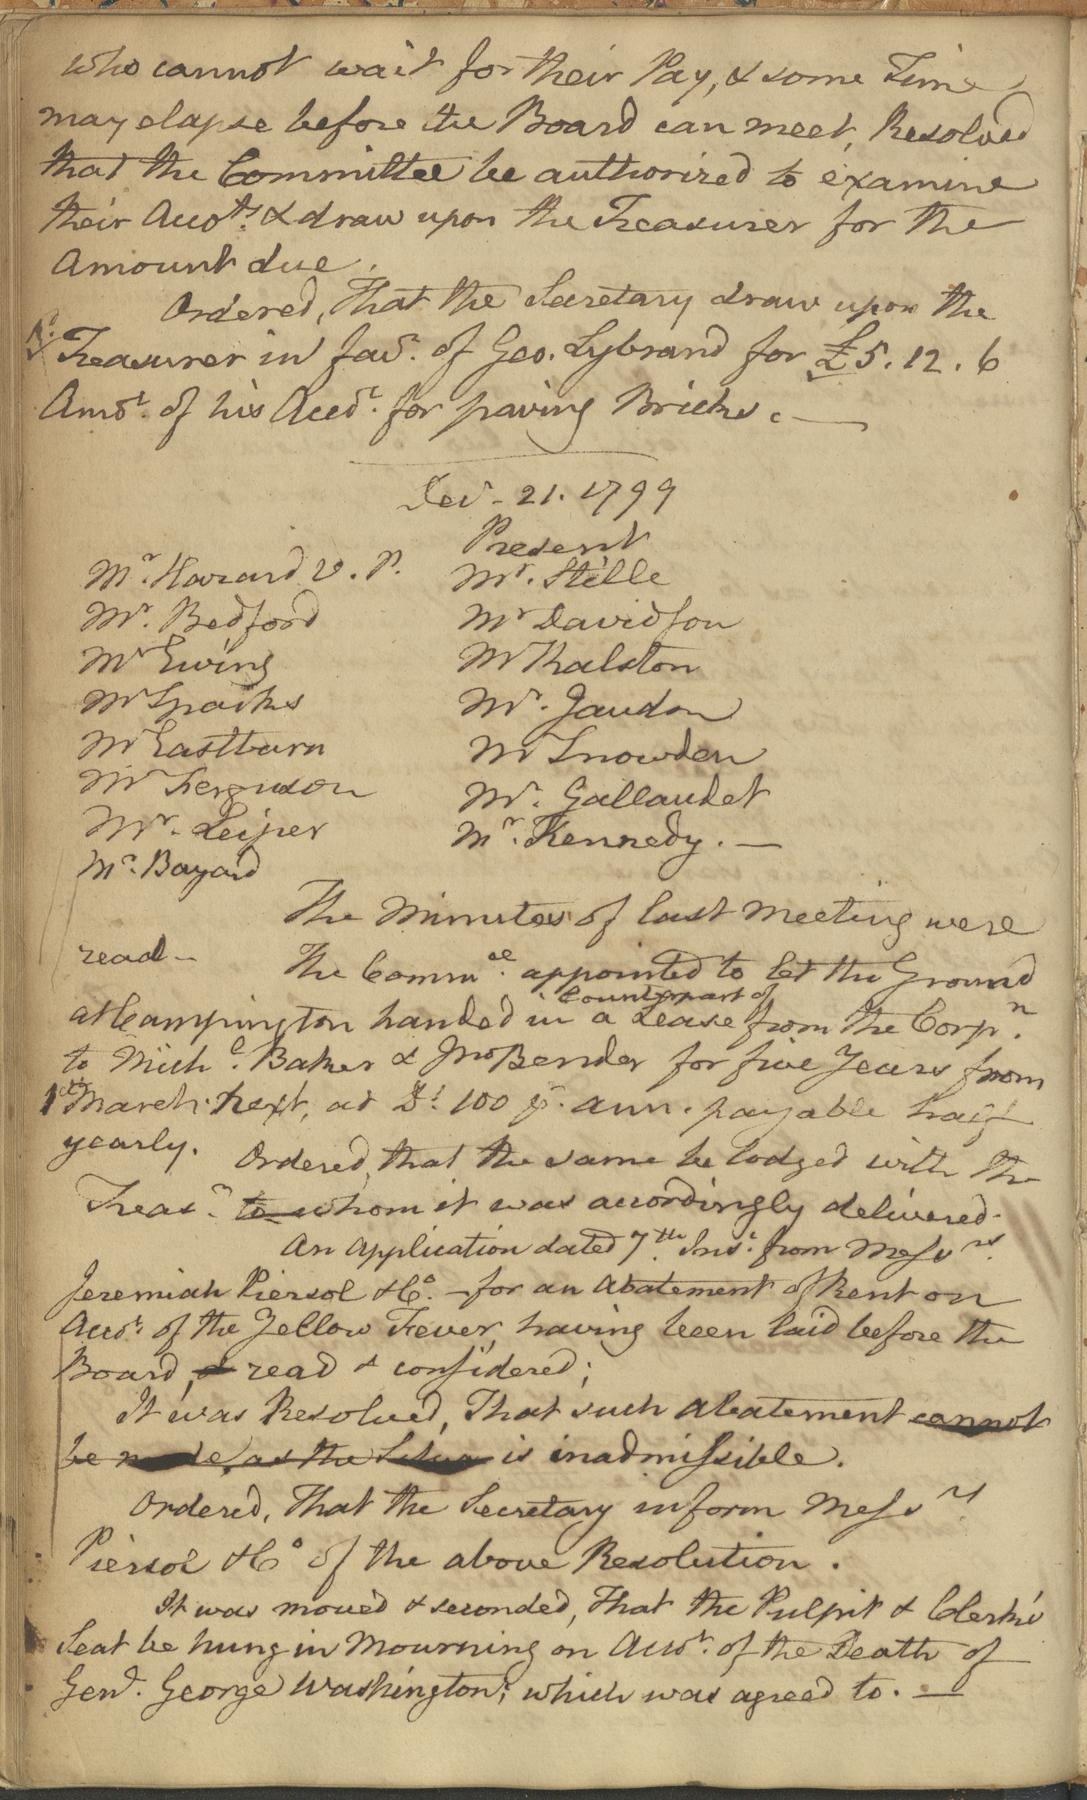 who cannot wait for their Pay, & some Time
may elapse before the Board can meet, Resolved
that the Committee be authorized to examine
their Accots. & draw upon the Treasurer for the
Amount due.
Ordered, That the Secretary draw upon the
Treasurer in favr. of Geo. Lybrand for £5.12.6
Amot. of his Accot. for paving Bricks. —
Decr. 21. 1799
Present
Mr. Hazard V. P.
Mr. Bedford
Mr Ewing
Mr Sparks
Mr Eastburn
Mr Ferguson
Mr. Leiper
Mr. Bayard
Mr. Stille
Mr Davidson
Mr Ralston
Mr. Jaudon
Mr Snowden
Mr. Gallaudet
Mr. Kennedy. —
The Minutes of last Meeting were
read —
The Commee. appointed to let the Ground
at Campington handed in a Counterpart of Lease from the Corpn.
to Michl. Baker & Jno Bender for five Years from
1st March next, at Ds. 100 pr. ann. payable half
yearly.
Ordered, that the same be lodged with the
Treasr. to whom it was accordingly delivered.
An Application dated 7th. Inst. from Messrs.
Jeremiah Piersol & Co. — for an Abatement of Rent on
Accot. of the Yellow Fever, having been laid before the
Board, & read & considered;
It was Resolved, That such Abatement cannot
be made, as the is inadmissible.
Ordered, That the Secretary inform Messrs.
Piersol & Co of the above Resolution.
It was moved & seconded, That the Pulpit & Clerk's
Seat be hung in Mourning on Accot. of the Death of
Genl. George Washington; which was agreed to. —